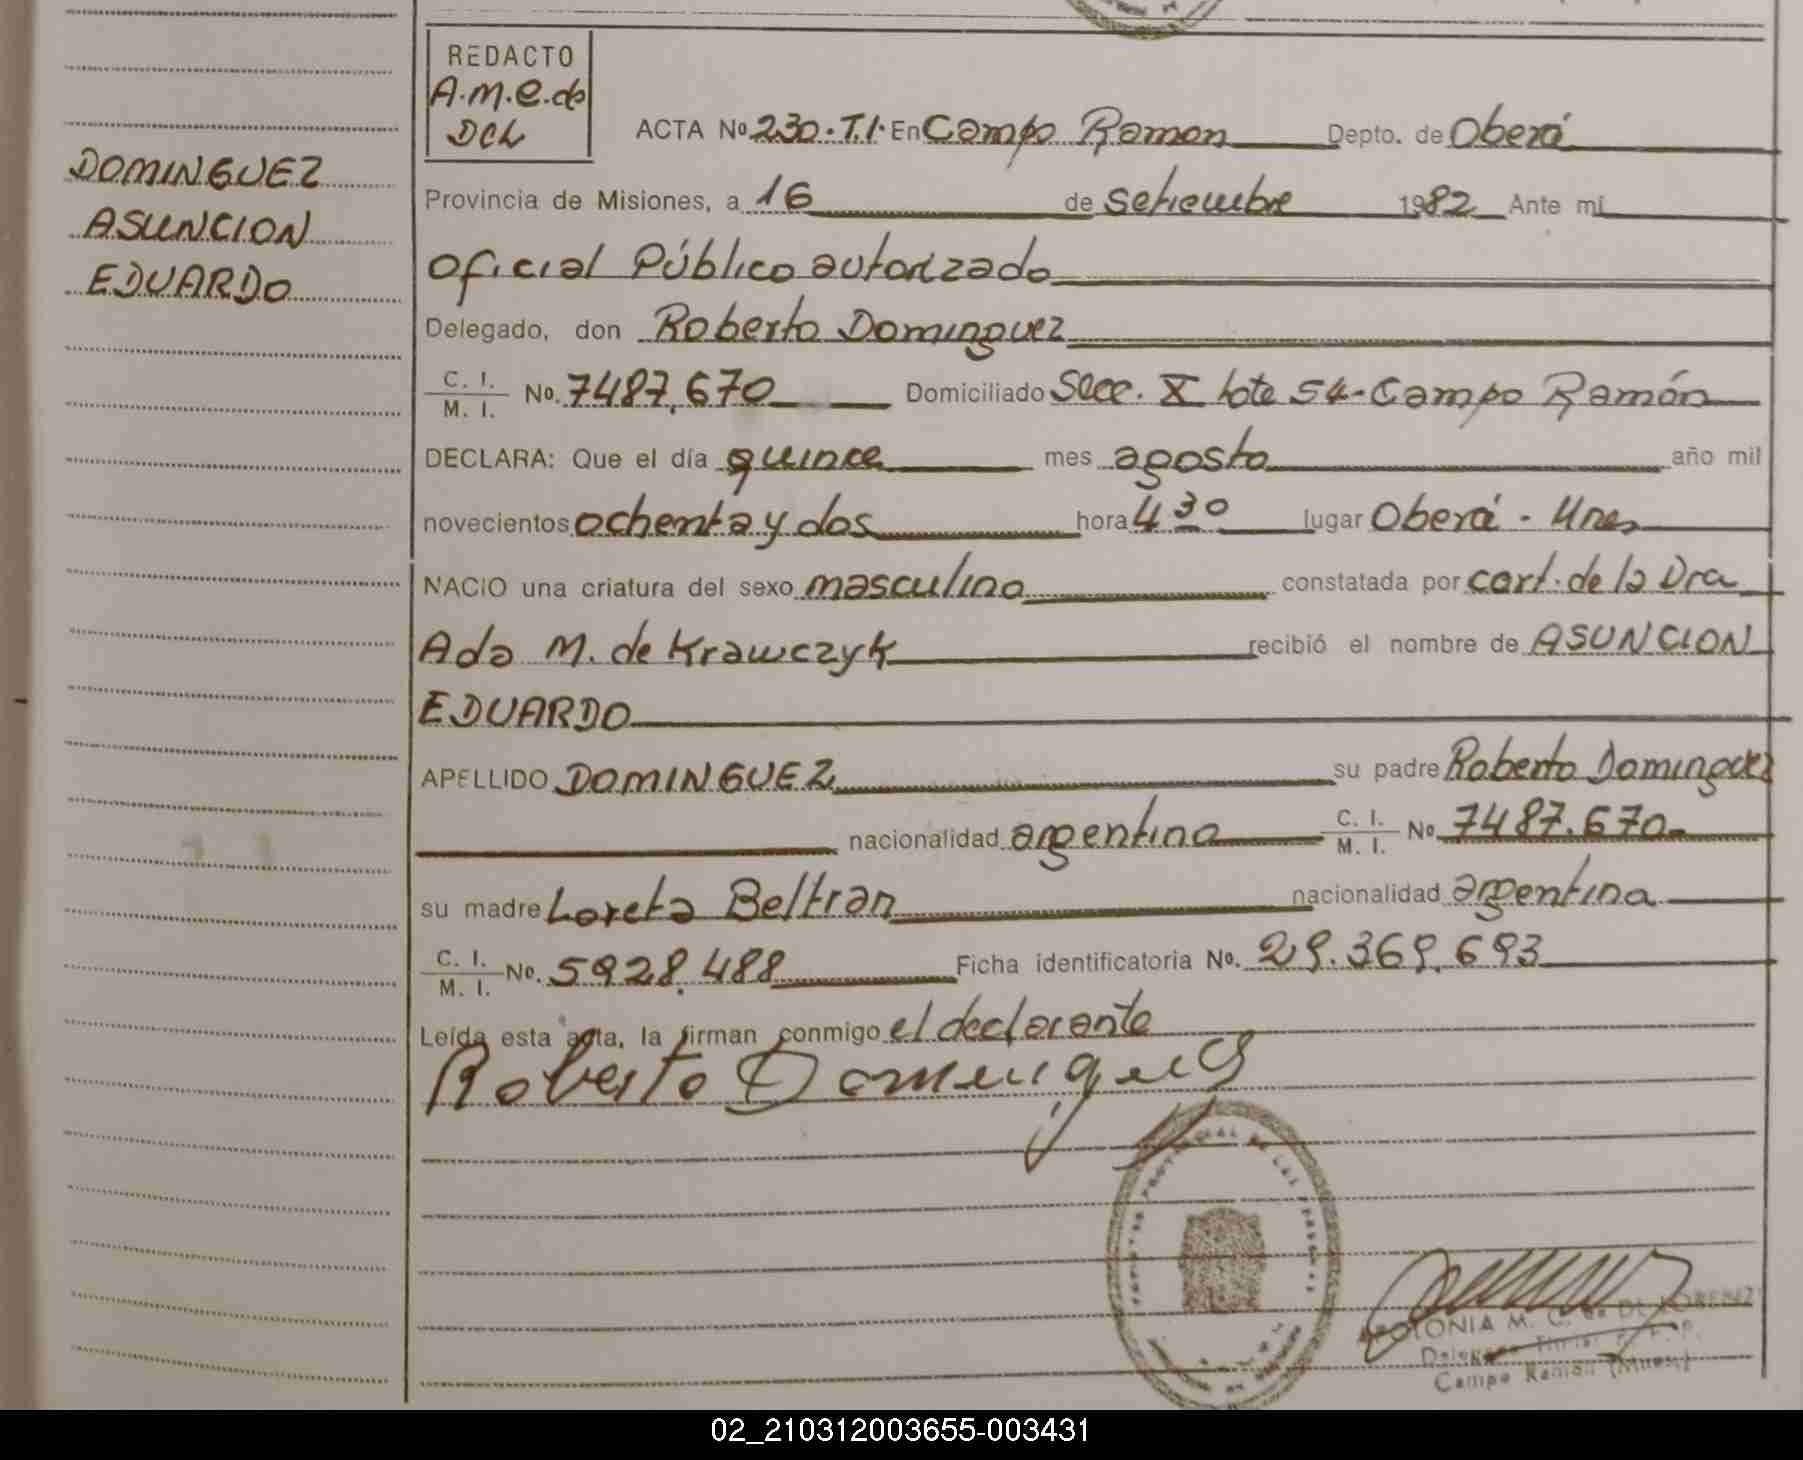 DOMINGUEZ
ASUNCION
EDUARDO
REDACTO
A.M.C.de
DCL
ACTA No 230.T.I. En Campo Ramon Depto. de Oberá
Provincia de Misiones, a 16 de setiembre 1982 Ante mí
Oficial Público autorizado
Delegado, don Roberto Dominguez
C. I. / M. I. No. 7487.670 Domiciliado Secc. X lote 54-Campo Ramón
DECLARA: Que el día quince mes agosto año mil
novecientos ochenta y dos hora 4 30 lugar Oberá - Mnes
NACIO una criatura del sexo masculino constatada por cert. de la Dra
Ada M. de Krawczyk recibió el nombre de ASUNCION
EDUARDO
APELLIDO DOMINGUEZ su padre Roberto Dominguez
nacionalidad argentina C. I. / M. I. No 7487.670-
su madre Loreta Beltran nacionalidad argentina
C. I. / M. I. No. 5928.488 Ficha identificatoria No. 29.369.693
Leída esta acta, la firman conmigo el declarante
Roberto Domengues
APOLONIA M. C. de DE LORENZ
Campo Ramon (Mnes)
02_210312003655-003431